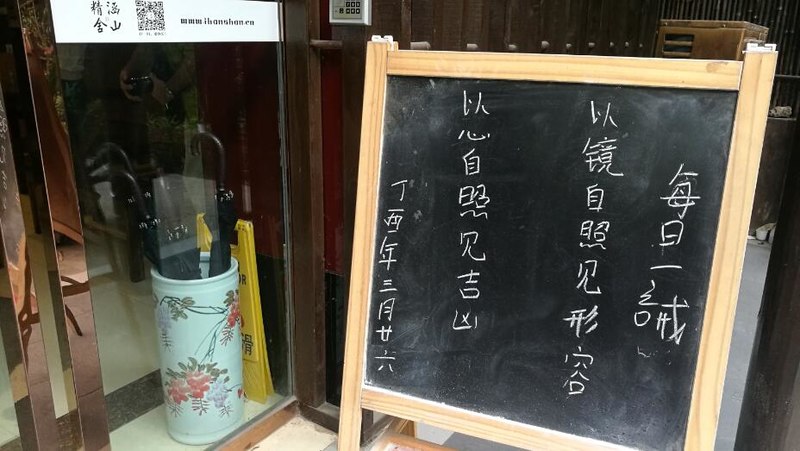 涵山
精舍
www.ihanshan.cn
每日一誡
以镜自照见形容
以心自照见吉凶
丁酉年三月廿六
滑